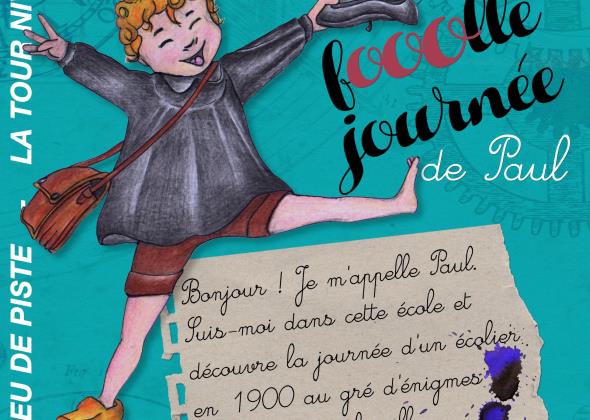 fooolle
journée
de Paul
EU DE PISTE - LA TOUR NI
Bonjour ! Je m'appelle Paul.
Suis-moi dans cette école et
découvre la journée d'un écolier
en 1900 au gré d'énigmes